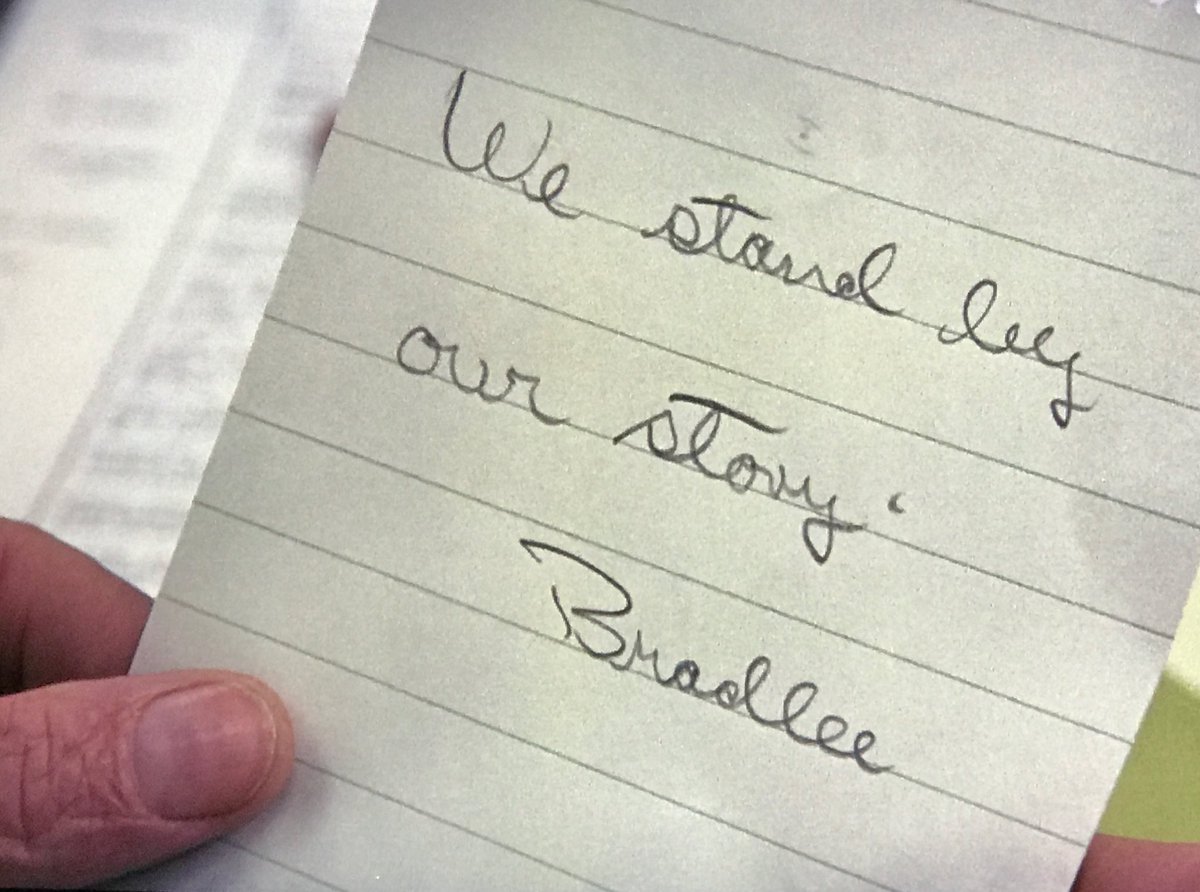 We stand by
our story.
Bradlee